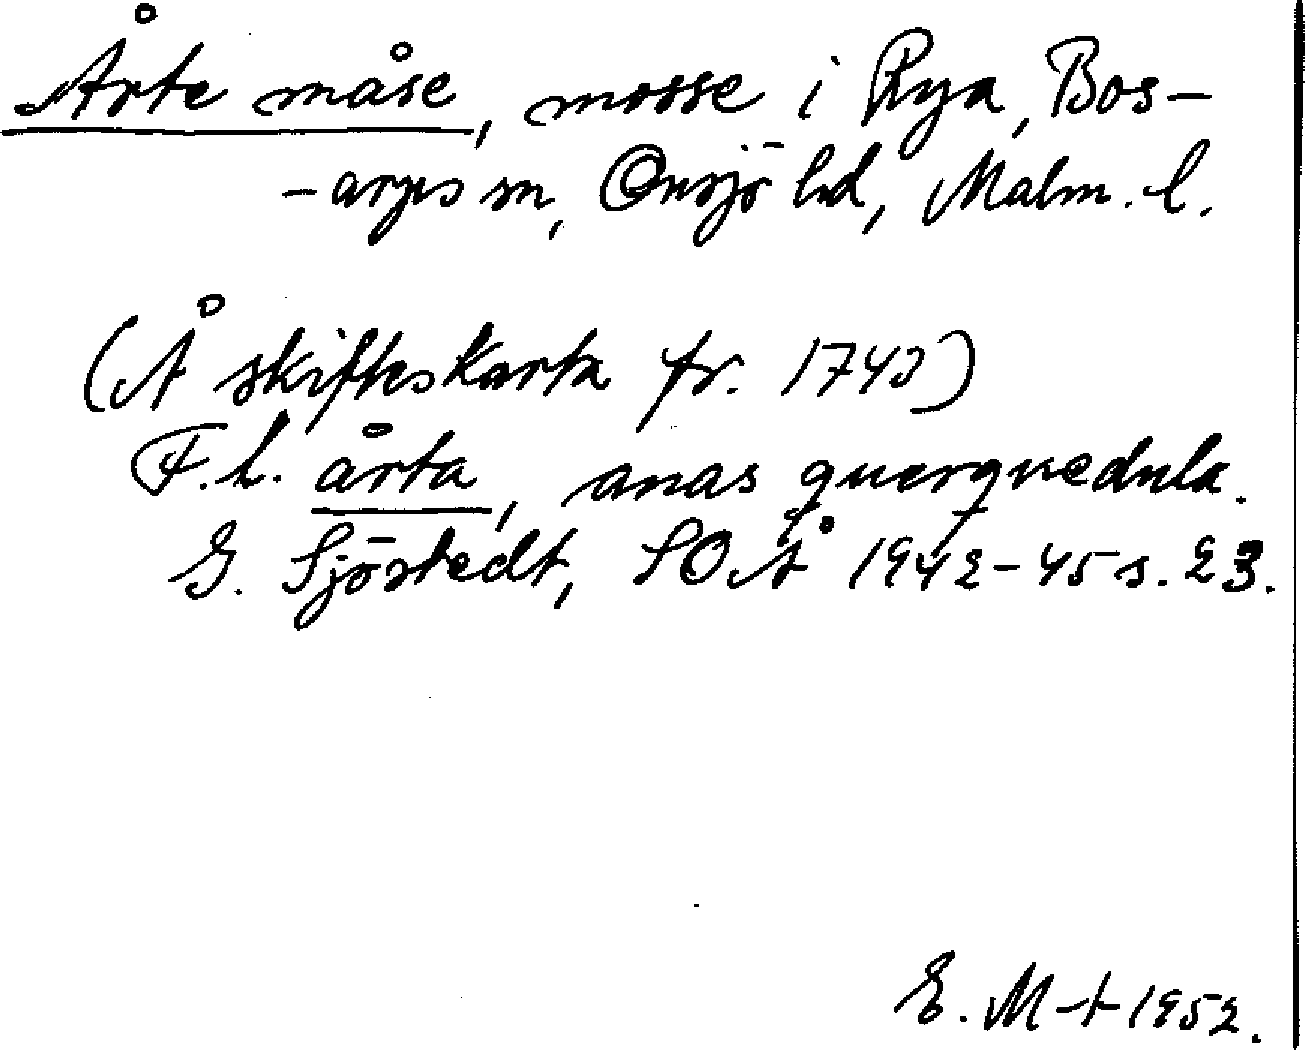 Årte måse, mosse i Rya, Bos-
-arps sn, Onsjö hd, Malm. l.
(Å skifteskarta fr. 1743)
F.l. årta, anas querquedula.
G. Sjöstedt, SOÅ 1942-45 s. 23.
E. M-t 1952.